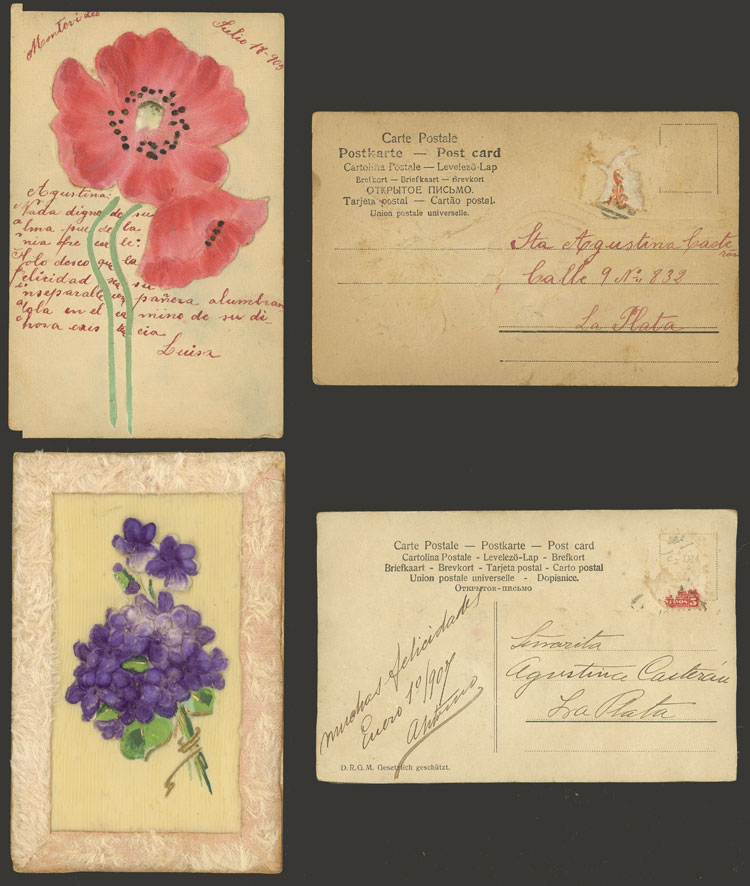 Montevideo
Julio 18-905
Agustina:
Nada digno de su
alma pue de la
mia ofre cer le:
Solo deseo que la
felicidad sea su
inseparable com pañera alumbran
dola en el ca mino de su di-
chosa exis tencia
Luisa
Carte Postale
Postkarte — Post card
Cartolina Postale — Levelező-Lap
Brefkort — Briefkaart — Brevkort
ОТКРЫТОЕ ПИСЬМО.
Tarjeta postal — Cartão postel.
Union postale universelle.
Sta Agustina Caste
rán
Calle 9 No. 832
La Plata
Carte Postale — Postkarte — Post card
Cartolina Postale - Levelező-Lap - Brefkort
Briefkaart - Brevkort - Tarjeta postal - Carto postal
Union postale universelle - Dopisnice.
Открытое-письмо
muchas felicidades
Enero 1º/907
Señorita
Agustina Casterán
La Plata
D. R. G. M. Gesetzlich geschützt.